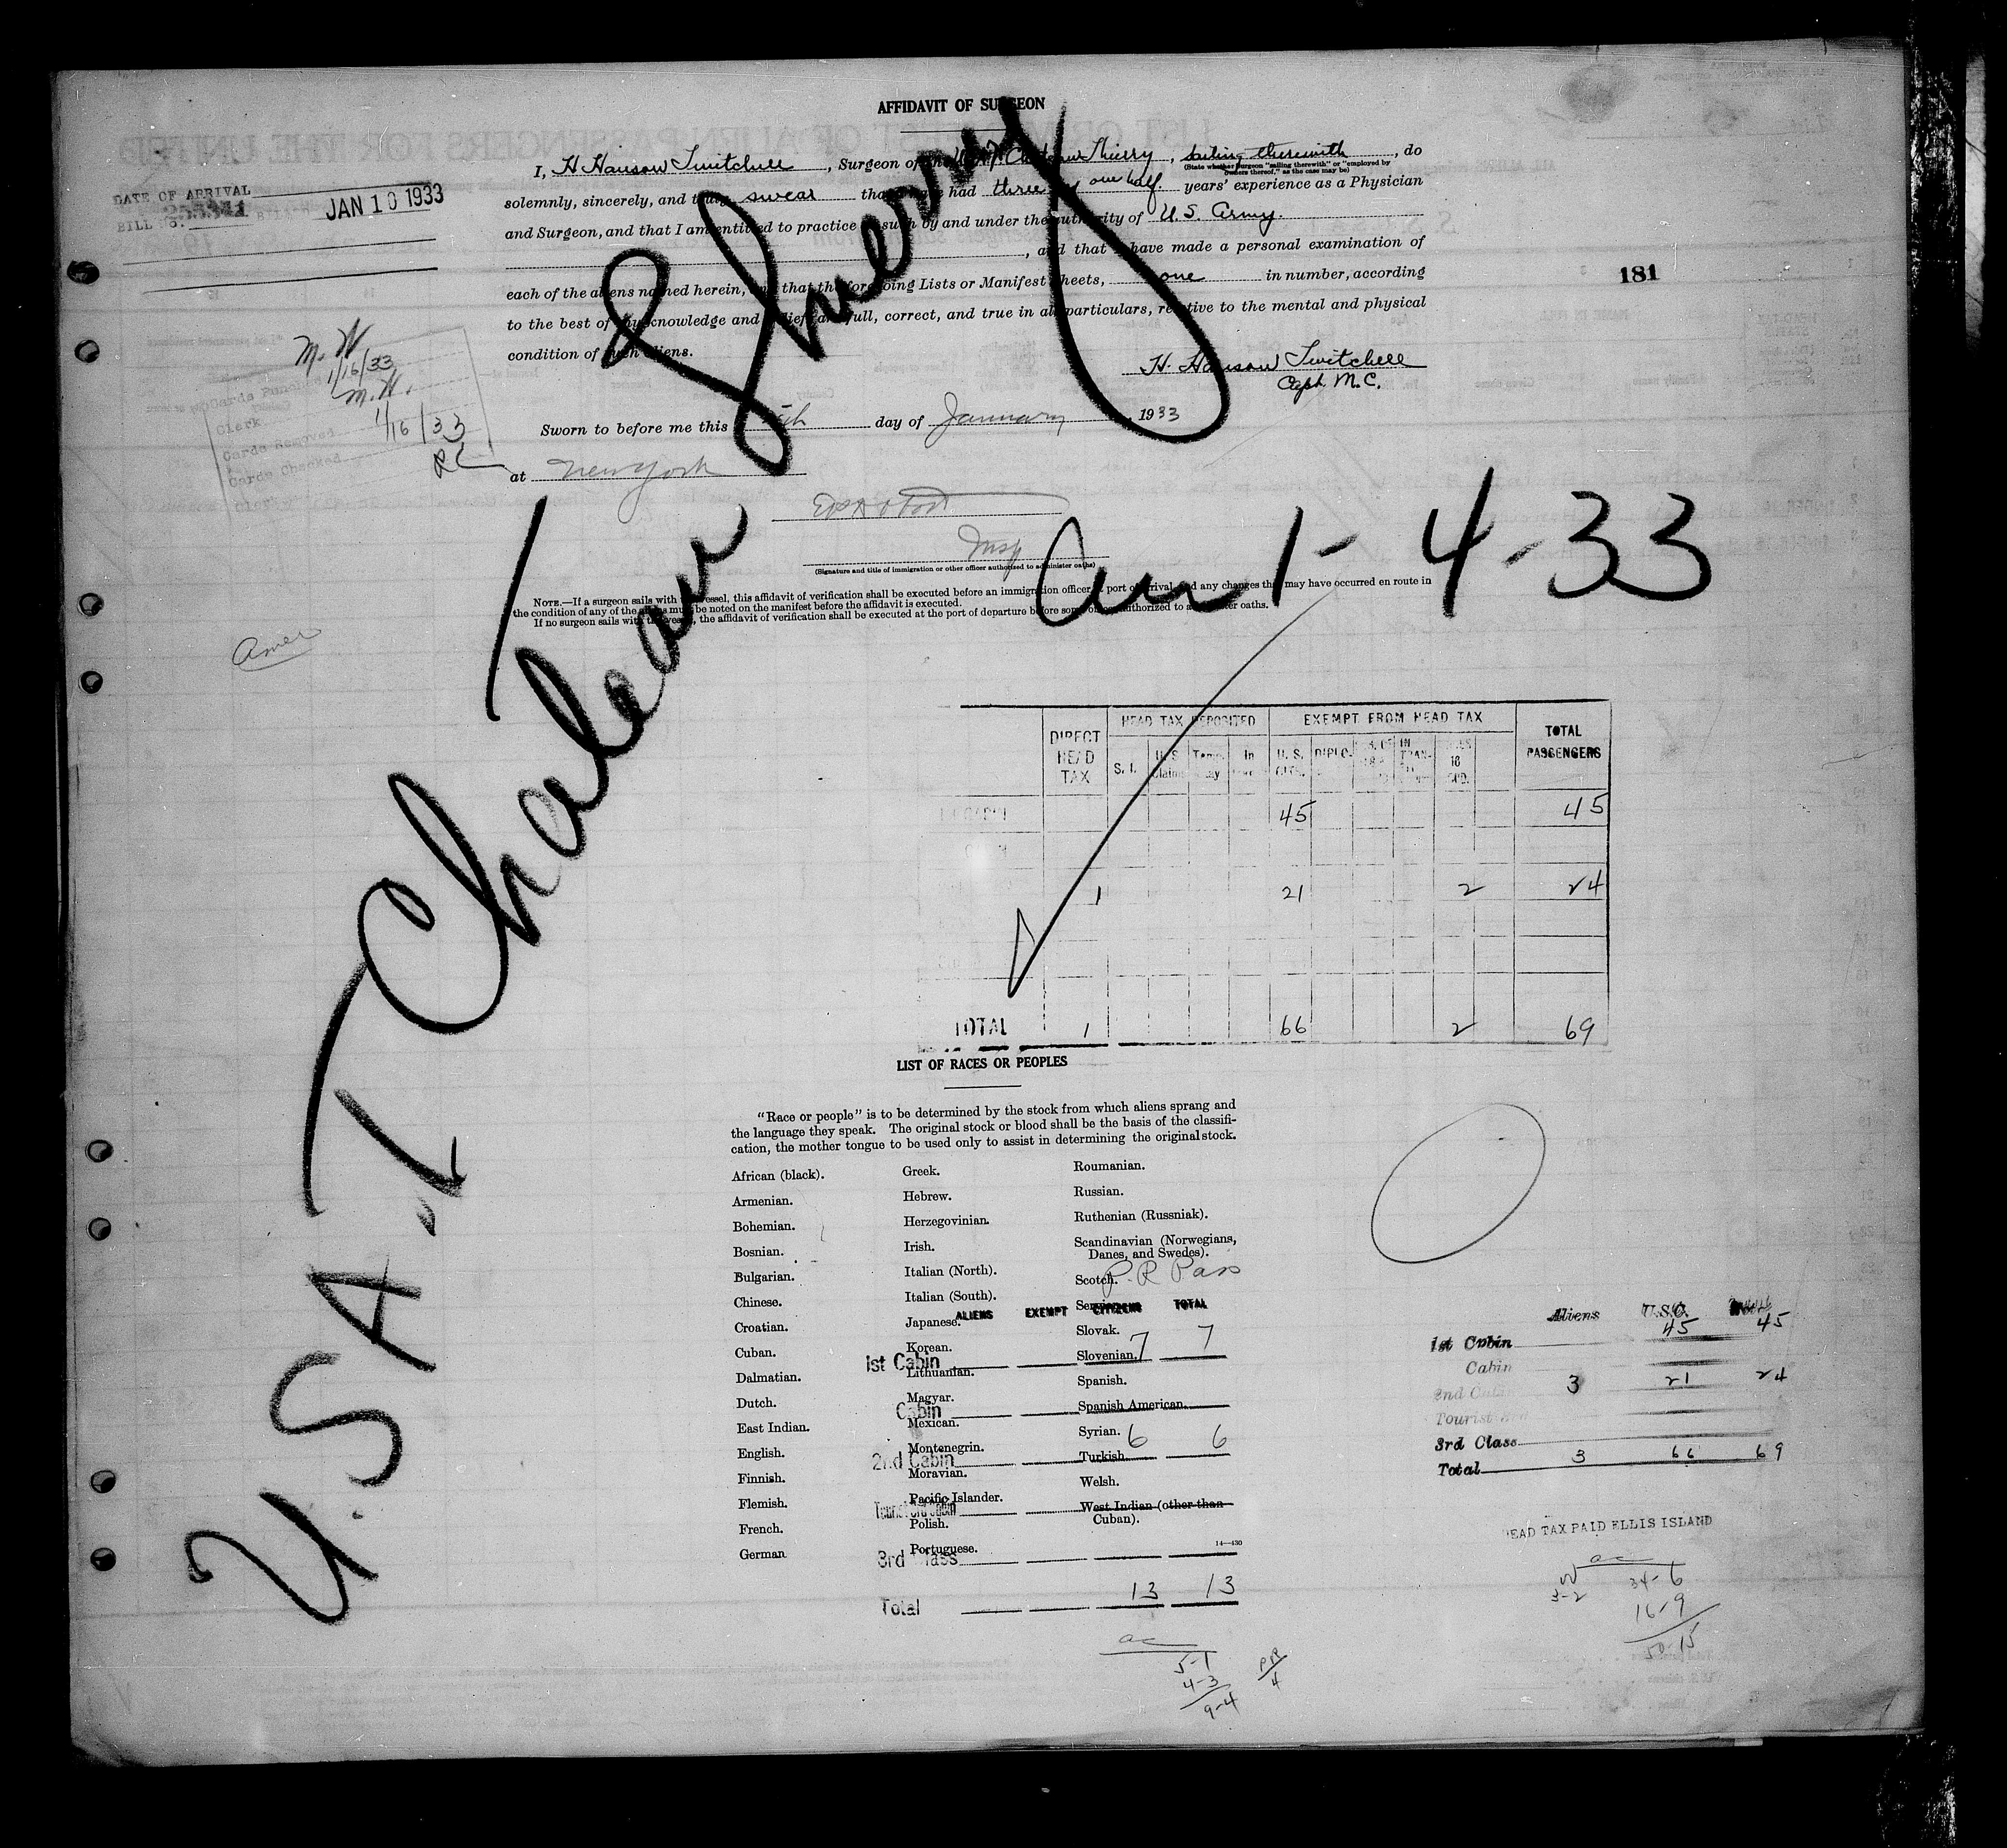 AFFIDAVIT OF SURGEON
I, H Hanson Twitchell, Surgeon of the Chateau Thierry, sailing therewith, do
(State whether Surgeon "sailing therewith" or "employed by
owners thereof," as the case may be)
solemnly, sincerely, and truly swear that I have had three one half years' experience as a Physician
and Surgeon, and that I am entitled to practice as such by and under the authority of U.S. Army.
, and that I have made a personal examination of
each of the aliens named herein, and that the foregoing Lists or Manifest Sheets, one in number, according
to the best of my knowledge and belief, are full, correct, and true in all particulars, relative to the mental and physical
condition of such aliens.
H. Hanson Twitchell
Capt. M.C.
Sworn to before me this day of January, 1933
at New York
Insp
(Signature and title of immigration or other officer authorized to administer oaths)
NOTE.—If a surgeon sails with the vessel, this affidavit of verification shall be executed before an immigration officer at port of arrival, and any changes that may have occurred en route in
the condition of any of the aliens must be noted on the manifest before the affidavit is executed.
If no surgeon sails with the vessel, the affidavit of verification shall be executed at the port of departure before some officer authorized to administer oaths.
DATE OF ARRIVAL JAN 10 1933
BILL NO.
181
M. H
1/16/33
Cards
M. H.
Clerk
Cards Removed 1/16/33
Cards Checked
Clerk
Amer
U.S.A.T Chateau Thierry
Arr 1-4-33
DIRECT HEAD TAX
HEAD TAX DEPOSITED
EXEMPT FROM HEAD TAX
TOTAL PASSENGERS
S. I. U. S. In U. S. DIPLO. IN TRAN-
45 45
1 21 2 24
TOTAL 1 66 2 69
LIST OF RACES OR PEOPLES
"Race or people" is to be determined by the stock from which aliens sprang and
the language they speak. The original stock or blood shall be the basis of the classifi-
cation, the mother tongue to be used only to assist in determining the original stock.
African (black).
Armenian.
Bohemian.
Bosnian.
Bulgarian.
Chinese.
Croatian.
Cuban.
Dalmatian.
Dutch.
East Indian.
English.
Finnish.
Flemish.
French.
German
Greek.
Hebrew.
Herzegovinian.
Irish.
Italian (North).
Italian (South).
Japanese.
Korean.
Lithuanian.
Magyar.
Mexican.
Montenegrin.
Moravian.
Pacific Islander.
Polish.
Portuguese.
Roumanian.
Russian.
Ruthenian (Russniak).
Scandinavian (Norwegians,
Danes, and Swedes).
Scotch.
Slovak.
Slovenian.
Spanish.
Spanish American.
Syrian.
Turkish.
Welsh.
West Indian (other than
Cuban).
14—430
P. R Pass
ALIENS EXEMPT CITIZENS TOTAL
1st Cabin 7 7
Cabin
2nd Cabin 6 6
3rd Class
Total 13 13
ac
5-1
4-3
9-4
PR
4
Aliens U.S.C.
1st Cabin 45 45
Cabin
2nd Cabin 3 21 24
Tourist
3rd Class
Total 3 66 69
HEAD TAX PAID ELLIS ISLAND
ac
3-2
34-6
16-9
50-15